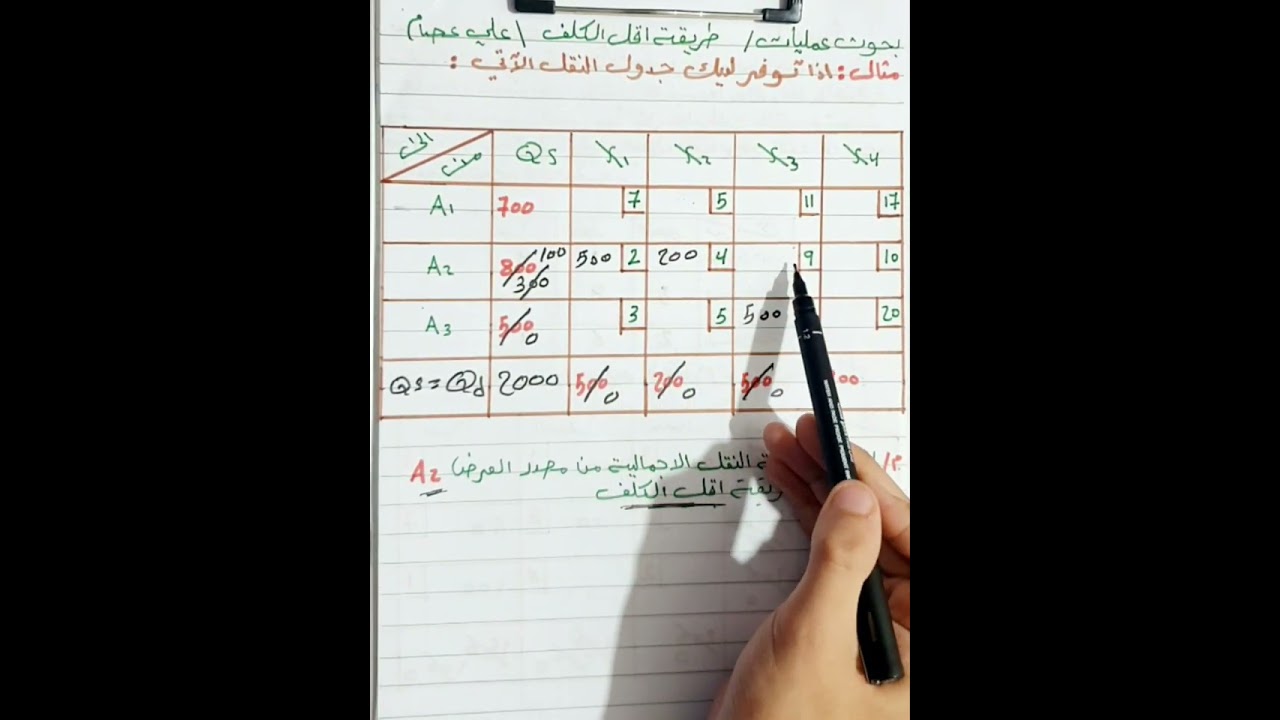 بحوث عمليات / طريقة اقل الكلف (علي عصام)
مثال: اذا توفر لديك جدول النقل الآتي:
الى من QS X1 X2 X3 X4
A1 700 7 5 11 17
A2 800 100 300 500 2 200 4 9 10
A3 500 0 3 5 500 20
QS=Qd 2000 500 0 200 0 500 0 00
م/ النقل الاجمالية من مصدر العرض A2
اقل الكلف